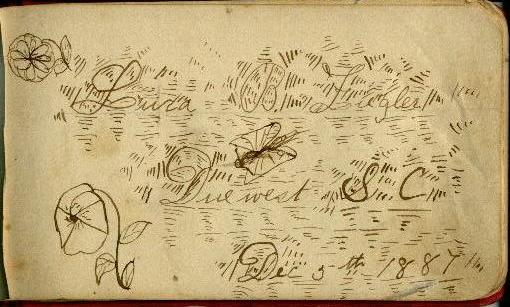 Luira O. Liegler
Due west S. C.
Dec 5th 1887